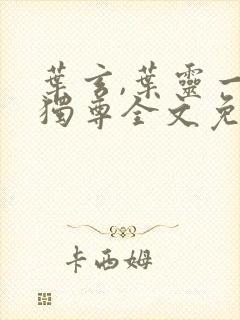 葉玄,葉靈一
獨尊全文免
卡西姆